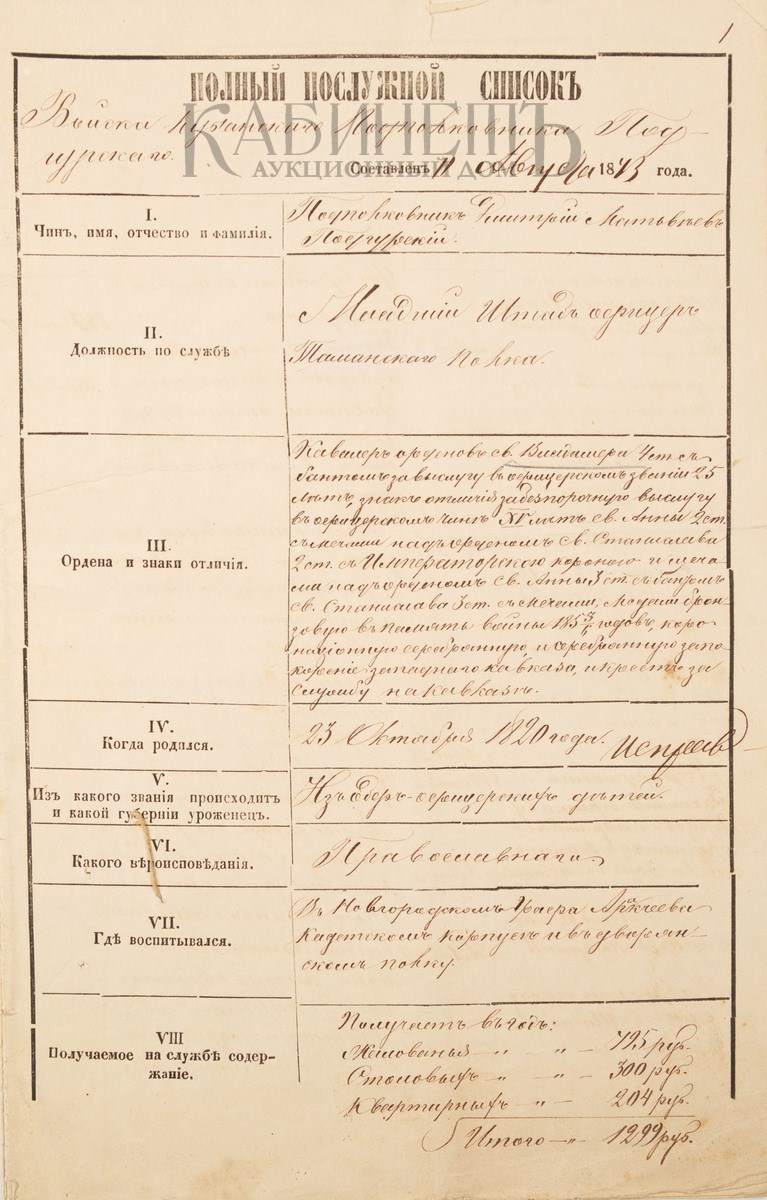 1
ПОЛНЫЙ ПОСЛУЖНОЙ СПИСОКЪ
КАБИНЕТЪ
АУКЦИОННЫЙ ДОМ
Войска Кубанскаго Подполковника Под-
гурскаго.
Составленъ 11 Августа 1873 года.
I.
Чинъ, имя, отчество и фамилія.
Подполковникъ Дмитрій Матвѣевъ
Подгурскій.
II.
Должность по службѣ
Младшій Штабъ офицеръ
Таманскаго полка.
III.
Ордена и знаки отличія.
Кавалеръ орденовъ св. Владимера 4 ст. съ
бантомъ за выслугу въ офицерскомъ званіи 25
лѣтъ, знакъ отличія за безпорочную выслугу
въ офицерскомъ чинѣ XV лѣтъ св. Анны 2 ст.
съ мечами надъ орденомъ св. Станислава
2 ст. съ Императорскою короною и меча-
ми надъ орденомъ св. Анны 3 ст. съ бантомъ
св. Станислава 3 ст. съ мечами, медали брон-
зовую въ память войны 185 3/6 годовъ, коро-
націонную серебранную, и серебранную за по-
кореніе западнаго кавказа, и крестъ за
службу на кавказѣ.
IV.
Когда родился.
23 Октября 1820 года.
V.
Изъ какого званія происходитъ
и какой губерніи уроженецъ.
Изъ Оберъ-офицерскихъ дѣтей.
VI.
Какого вѣроисповѣданія.
Православнаго
VII.
Гдѣ воспитывался.
Въ Новгородскомъ Графа Аракчеева
Кадетскомъ корпусѣ и въ дворян-
скомъ полку.
VIII
Получаемое на службѣ содер-
жаніе.
Получаетъ въ годъ:
Жалованья „ „ – 795 руб.
Столовыхъ „ „ – 300 руб.
Квартирныхъ – „ – 204 руб.
Итого – „ – 1299 руб.